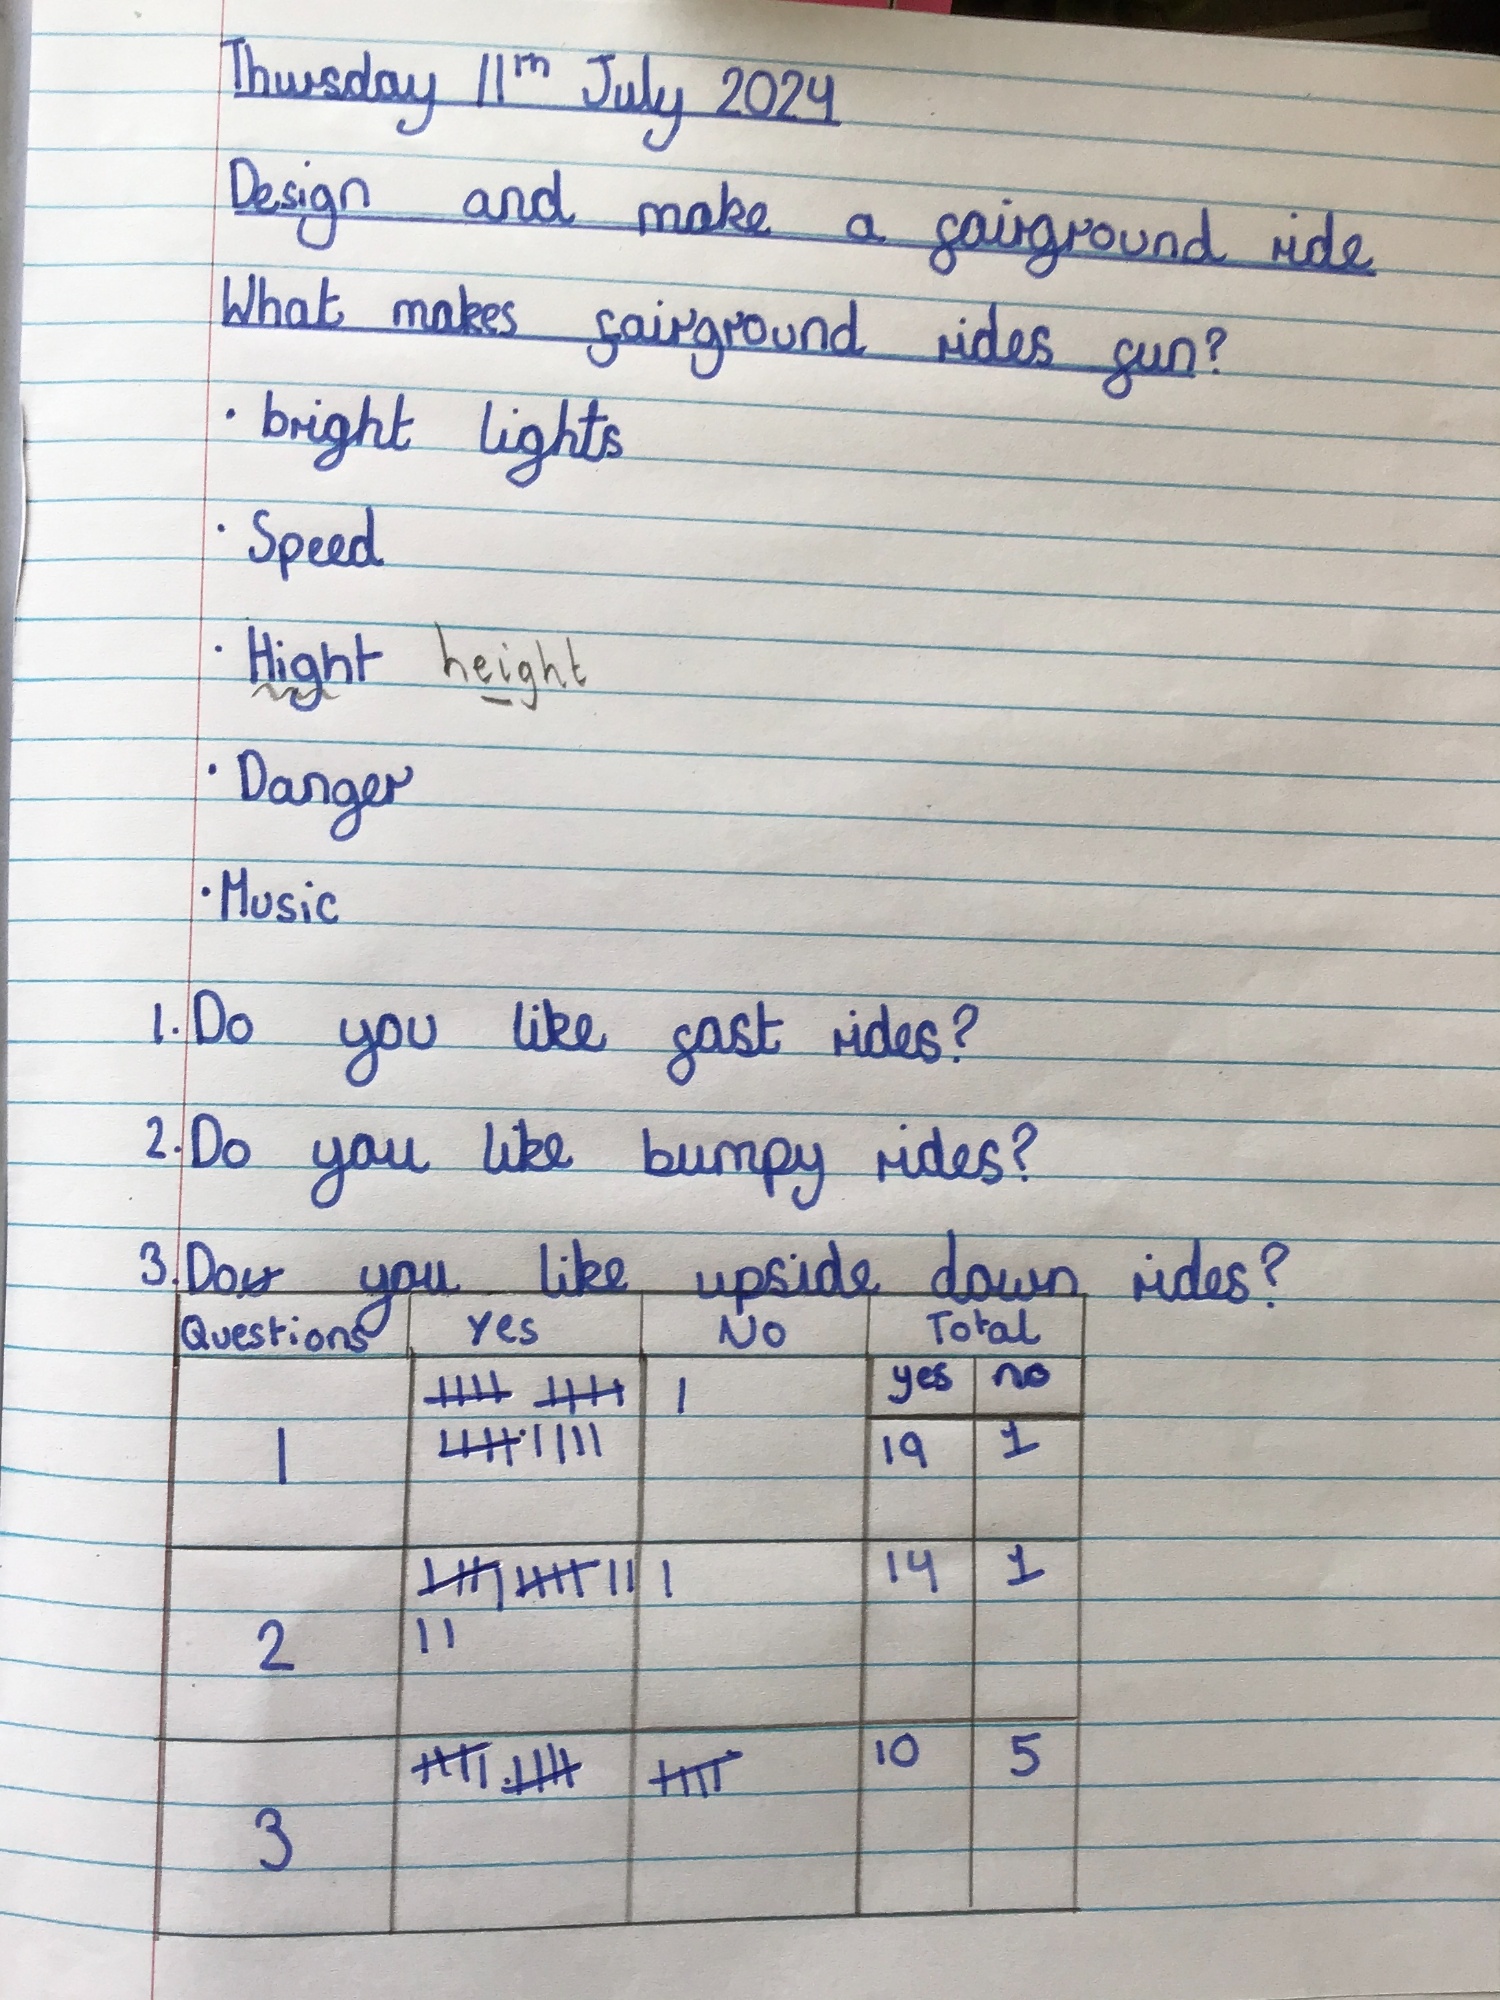 Thursday 11th July 2024
Design and make a fairground ride
What makes fairground rides fun?
· bright lights
· Speed
· Hight height
· Danger
· Music
1. Do you like fast rides?
2. Do you like bumpy rides?
3. Do you like upside down rides?
Questions Yes No Total
yes no
1 19 1
2 14 1
3 10 5